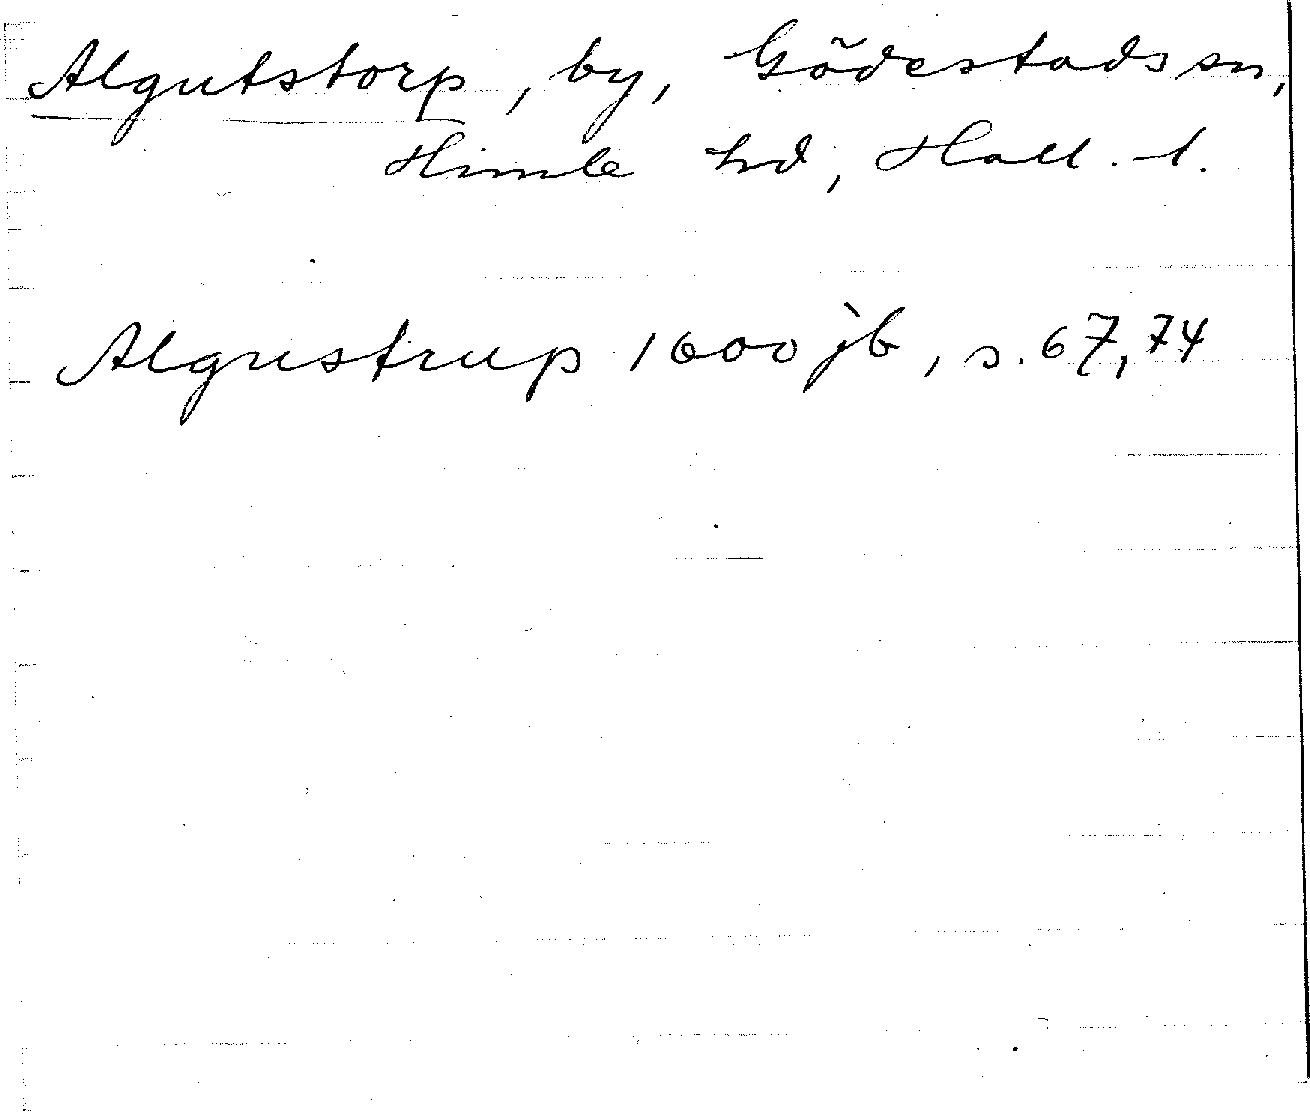 Algutstorp, by, Gödestads sn,
Himle hd, Hall. l.
Algustrup 1600 jb, s. 67, 74